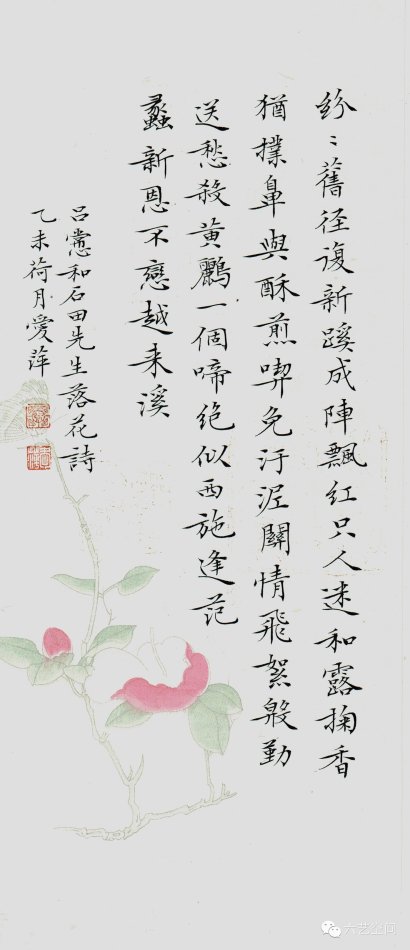 紛〻舊径復新蹊成陣飄紅只人迷和露掬香
猶撲鼻與酥煎喫免汙泥關情飛絮殷勤
送愁殺黄鸝一個啼绝似西施逢范
蠡新恩不戀越来溪
吕㦂和石田先生落花詩
乙未荷月愛萍
六艺空间